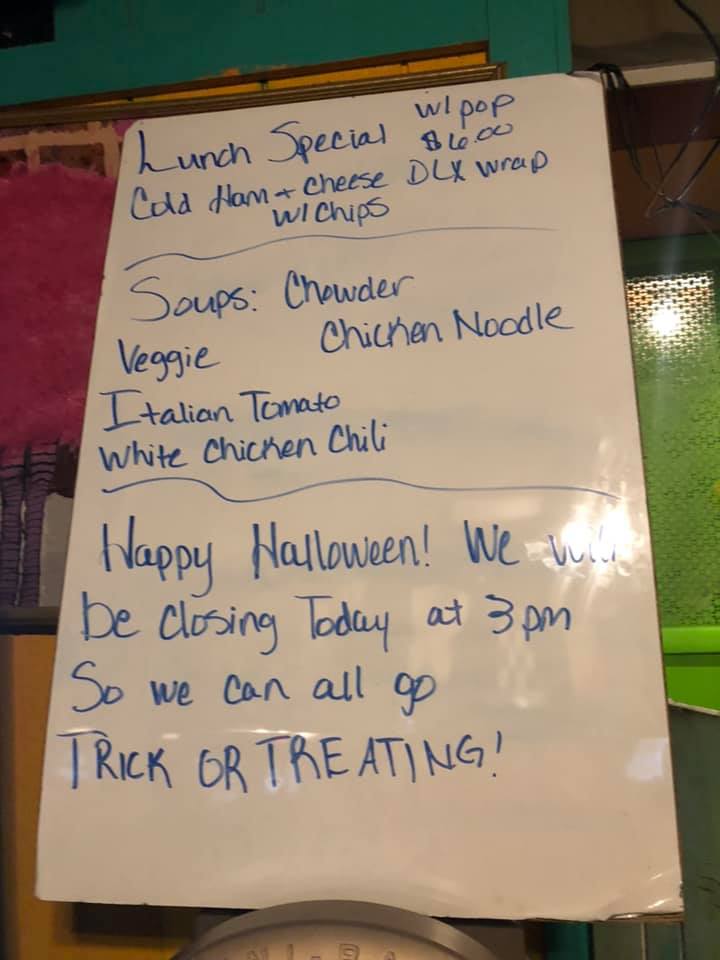 Lunch Special w/ pop
$6.00
Cold Ham + Cheese DLX wrap
w/ Chips
Soups: Chowder
Chicken Noodle
Veggie
Italian Tomato
White Chicken Chili
Happy Halloween! We will
be closing Today at 3pm
So we can all go
TRICK OR TREATING!